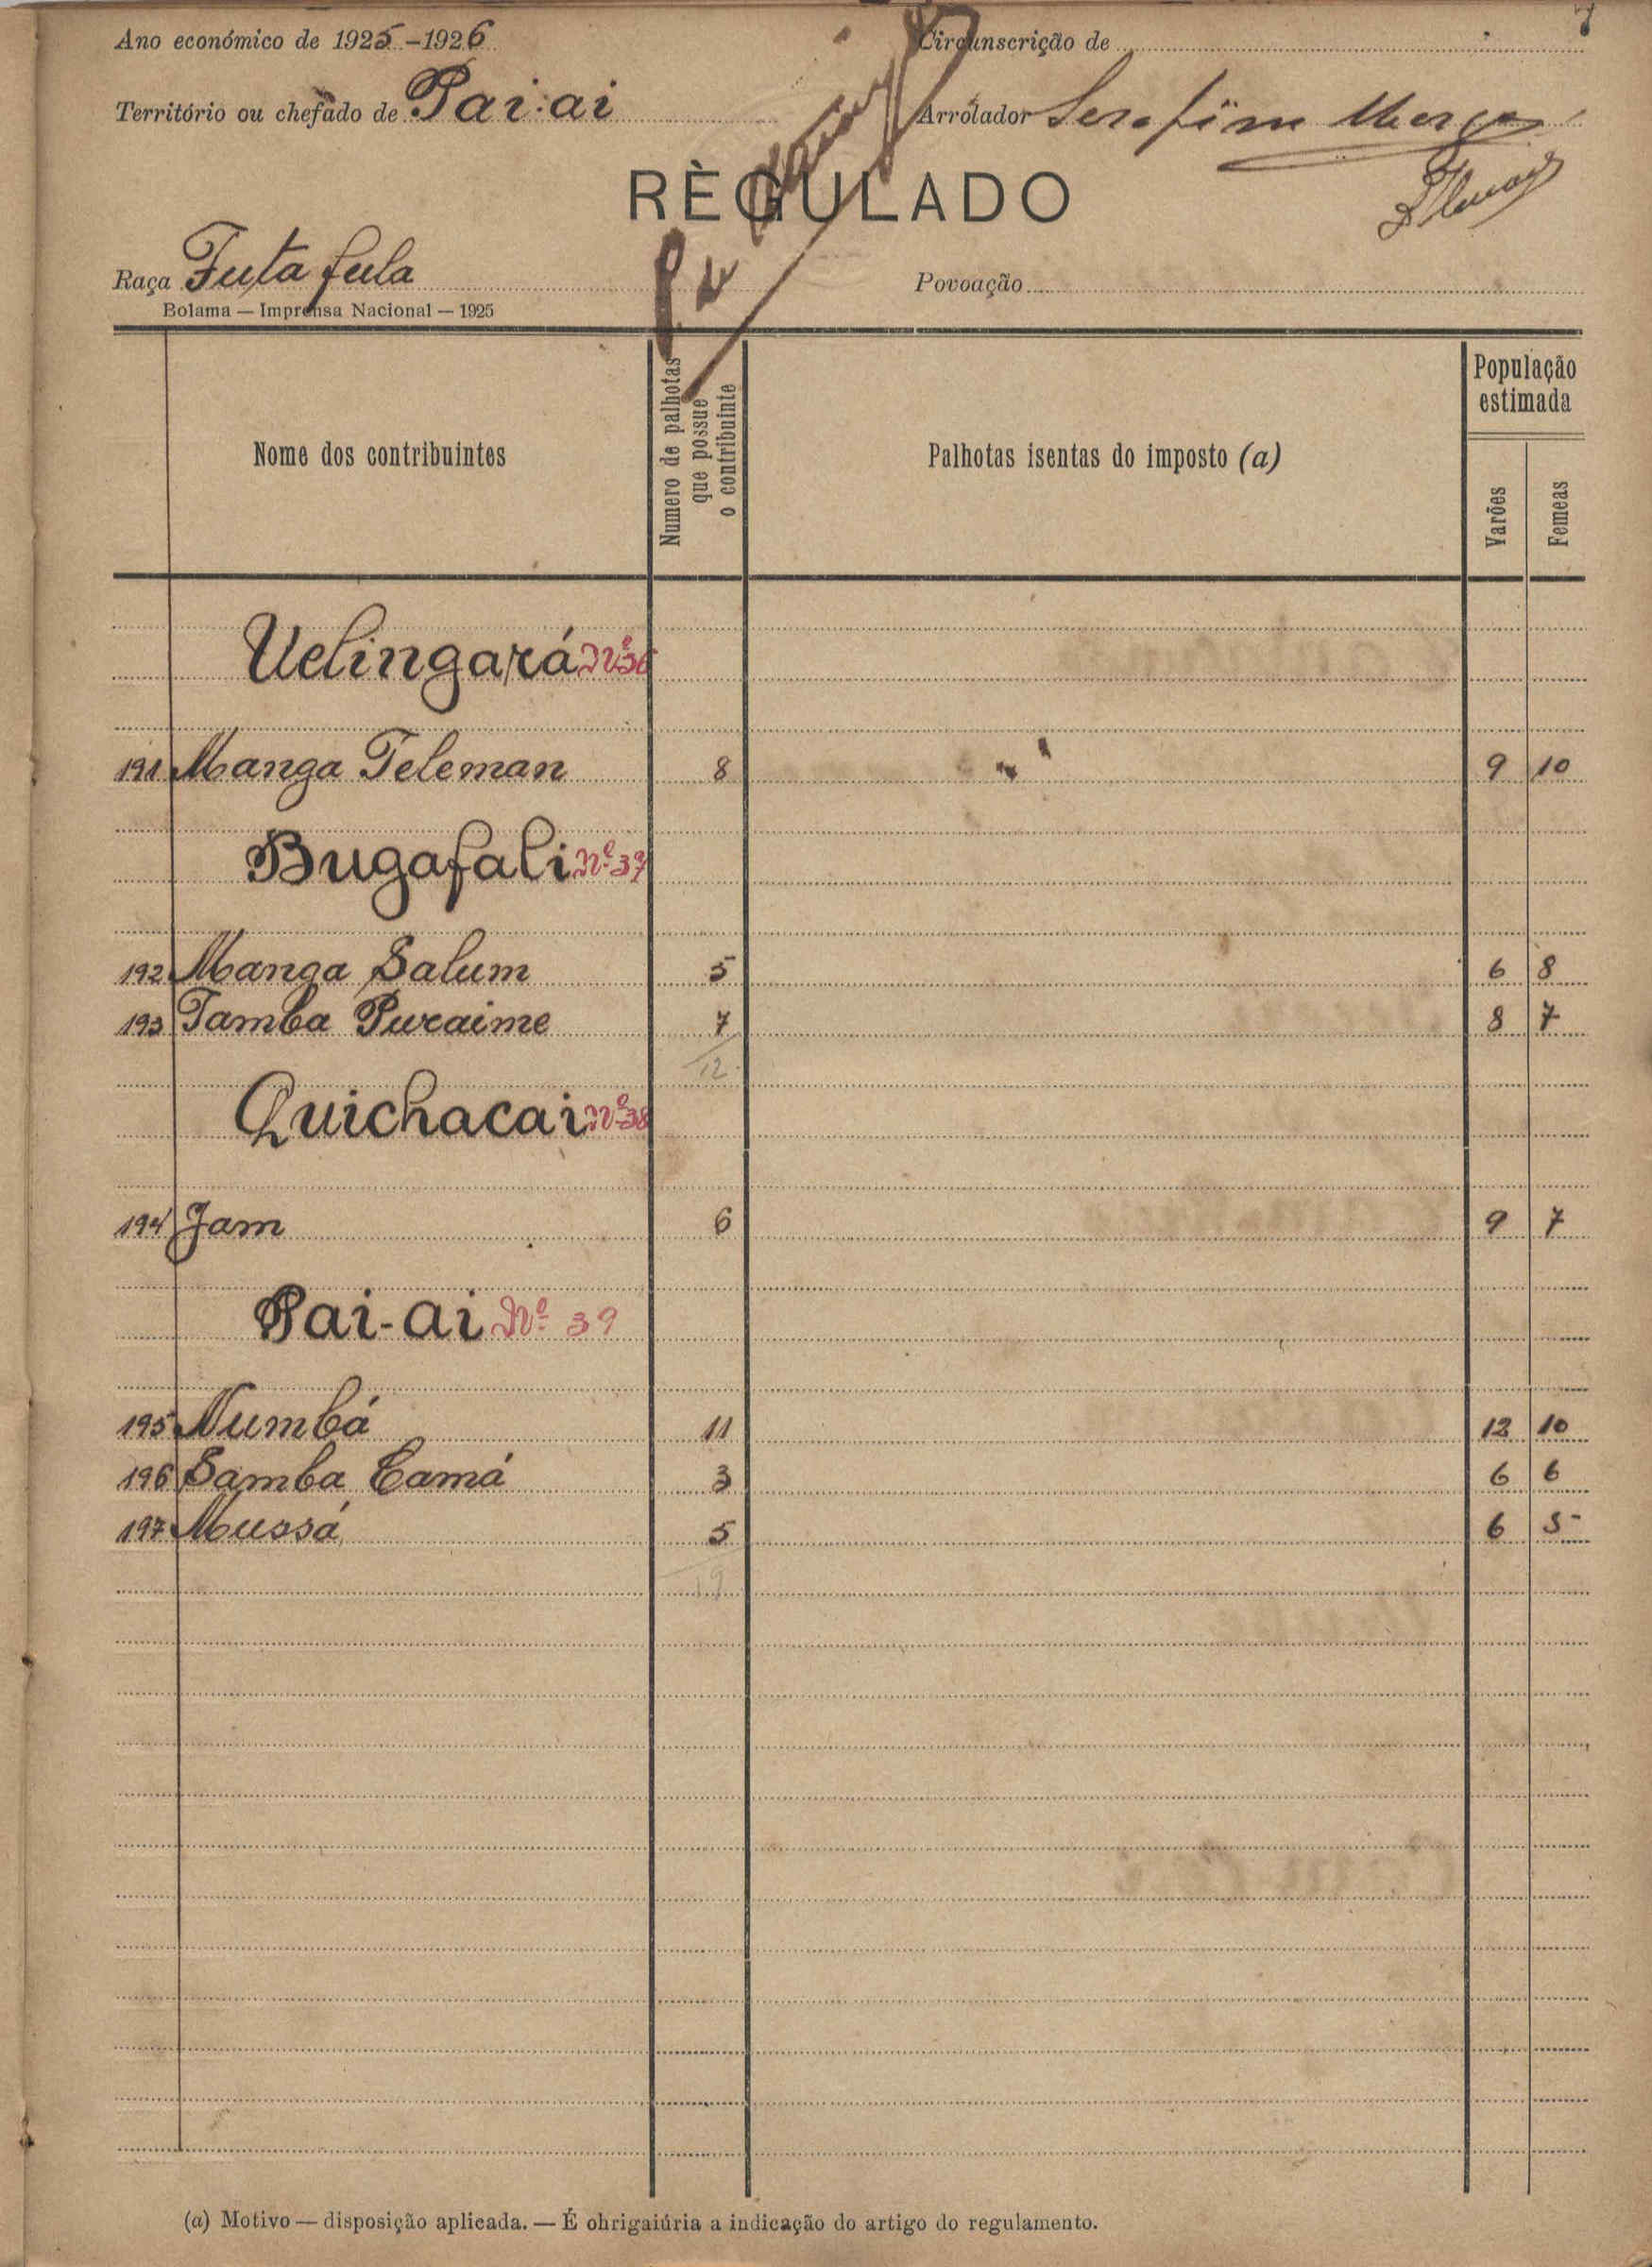 7
Ano económico de 1925-1926
Circunscrição de
Território ou chefado de Pai-ai
Arrolador Serafim
RÈGULADO
Raça Futa fula
Povoação
Bolama — Imprensa Nacional — 1925
Nome dos contribuintes
Numero de palhotas que possue o contribuinte
Palhotas isentas do imposto (a)
População estimada
Varões
Femeas
Uelingará Nº 36
191 Manga Teleman 8 9 10
Bugafali Nº 37
192 Manga Salum 5 6 8
193 Tamba Puraime 7 8 7
12
Quichacai Nº 38
194 Jam 6 9 7
Pai-ai Nº 39
195 Numbá 11 12 10
196 Samba Camá 3 6 6
197 Mussá 5 6 5
19
(a) Motivo — disposição aplicada. — É ohrigaiúria a indicação do artigo do regulamento.